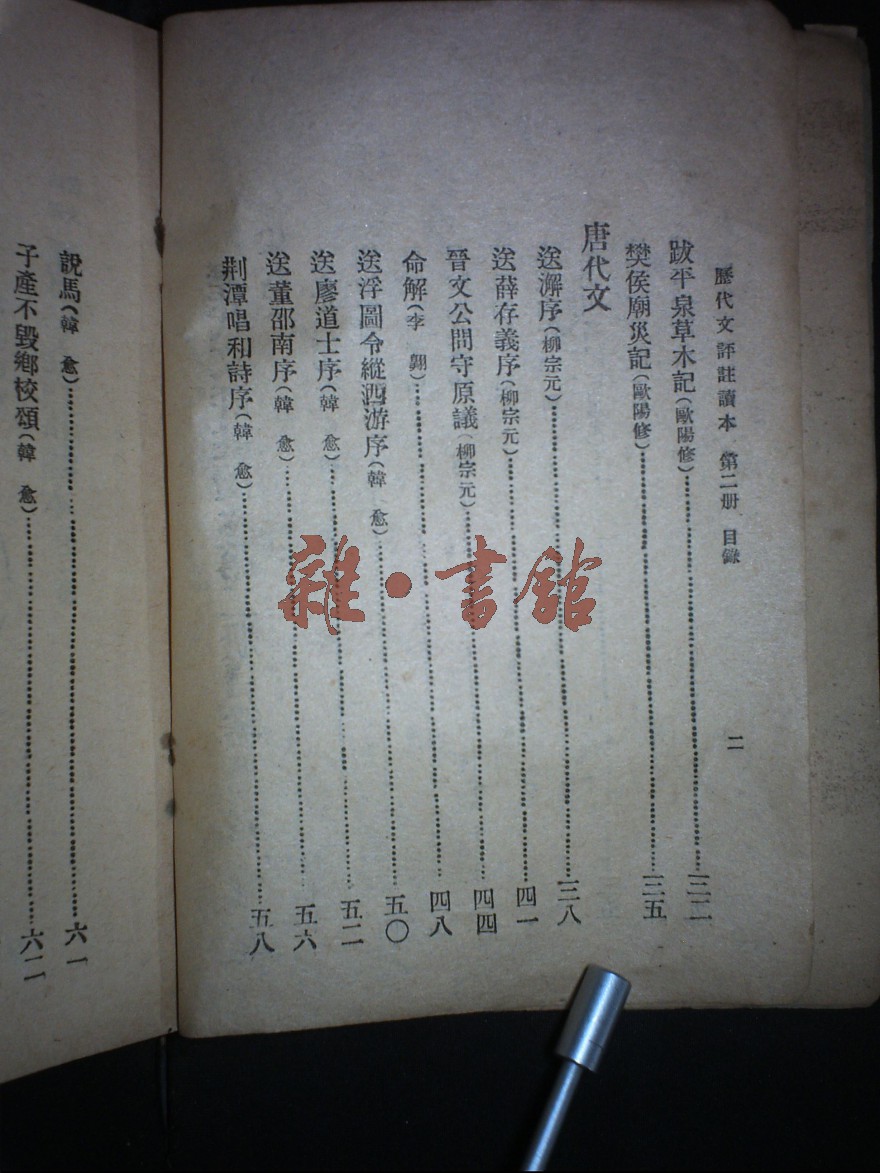 歷代文評註讀本 第二册 目錄 二
跋平泉草木記(歐陽修)……三二
樊侯廟災記(歐陽修)……三五
唐代文
送澥序(柳宗元)……三八
送薛存義序(柳宗元)……四一
晉文公問守原議(柳宗元)……四四
命解(李翺)……四八
送浮圖令縱西游序(韓愈)……五〇
送廖道士序(韓愈)……五二
送董邵南序(韓愈)……五六
荆潭唱和詩序(韓愈)……五八
說馬(韓愈)……六一
子產不毀鄉校頌(韓愈)……六二
雜·書館